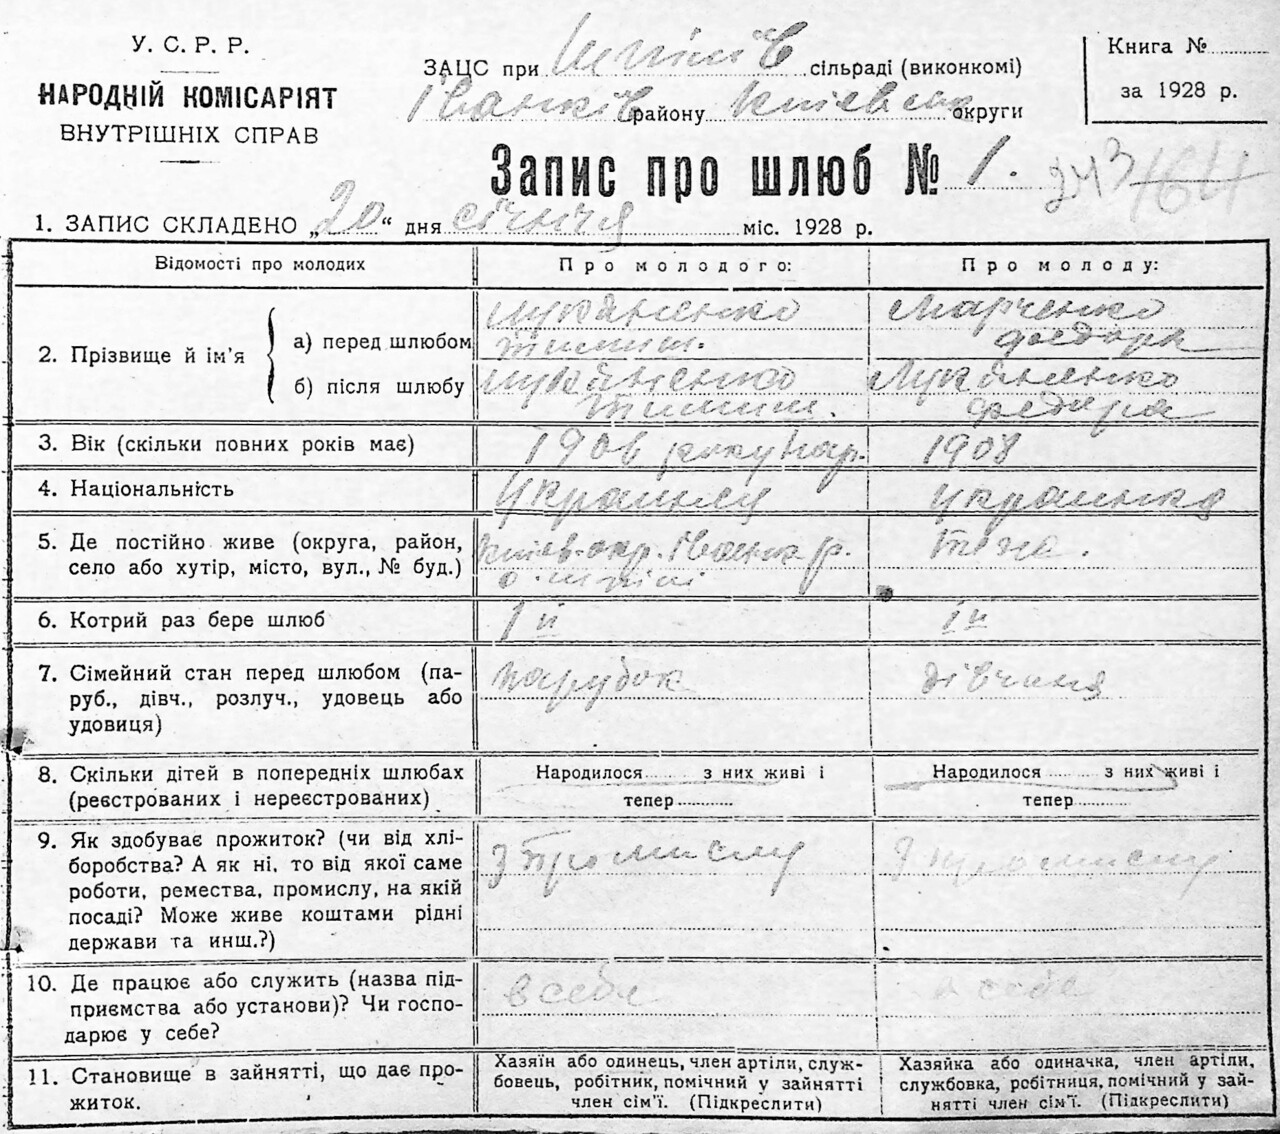 У. С. Р. Р.
НАРОДНІЙ КОМІСАРІЯТ
ВНУТРІШНІХ СПРАВ
ЗАЦС при Шпилів сільраді (виконкомі)
Іванків району Київськ округи
Книга №
за 1928 р.
Запис про шлюб № 1.
243 164
1. ЗАПИС СКЛАДЕНО „20“ дня січня міс. 1928 р.
Відомості про молодих Про молодого: Про молоду:
2. Прізвище й ім’я
а) перед шлюбом Лукяненко Марченко
Тимиш. Федора
б) після шлюбу Лукяненко Лукяненко
Тимиш. Федора
3. Вік (скільки повних років має) 1906 року нар. 1908
4. Національність українец українка
5. Де постійно живе (округа, район, Київ. окр. Іванк р.
село або хутір, місто, вул., № буд.)
6. Котрий раз бере шлюб 1й 1й
7. Сімейний стан перед шлюбом (па-
руб., дівч., розлуч., удовець або парубок дівчина
удовиця)
8. Скільки дітей в попередніх шлюбах Народилося з них живі і Народилося з них живі і
(реєстрованих і нереєстрованих) тепер тепер
9. Як здобуває прожиток? (чи від хлі- з промислу з промислу
боробства? А як ні, то від якої саме
роботи, ремества, промислу, на якій
посаді? Може живе коштами рідні
держави та инш.?)
10. Де працює або служить (назва під- в себе в себе
приємства або установи)? Чи госпо-
дарює у себе?
11. Становище в зайнятті, що дає про-
житок.
Хазяїн або одинець, член артіли, служ-
бовець, робітник, помічний у зайнятті
член сім’ї. (Підкреслити)
Хазяйка або одиначка, член артіли,
службовка, робітниця, помічний у зай-
нятті член сім’ї. (Підкреслити)